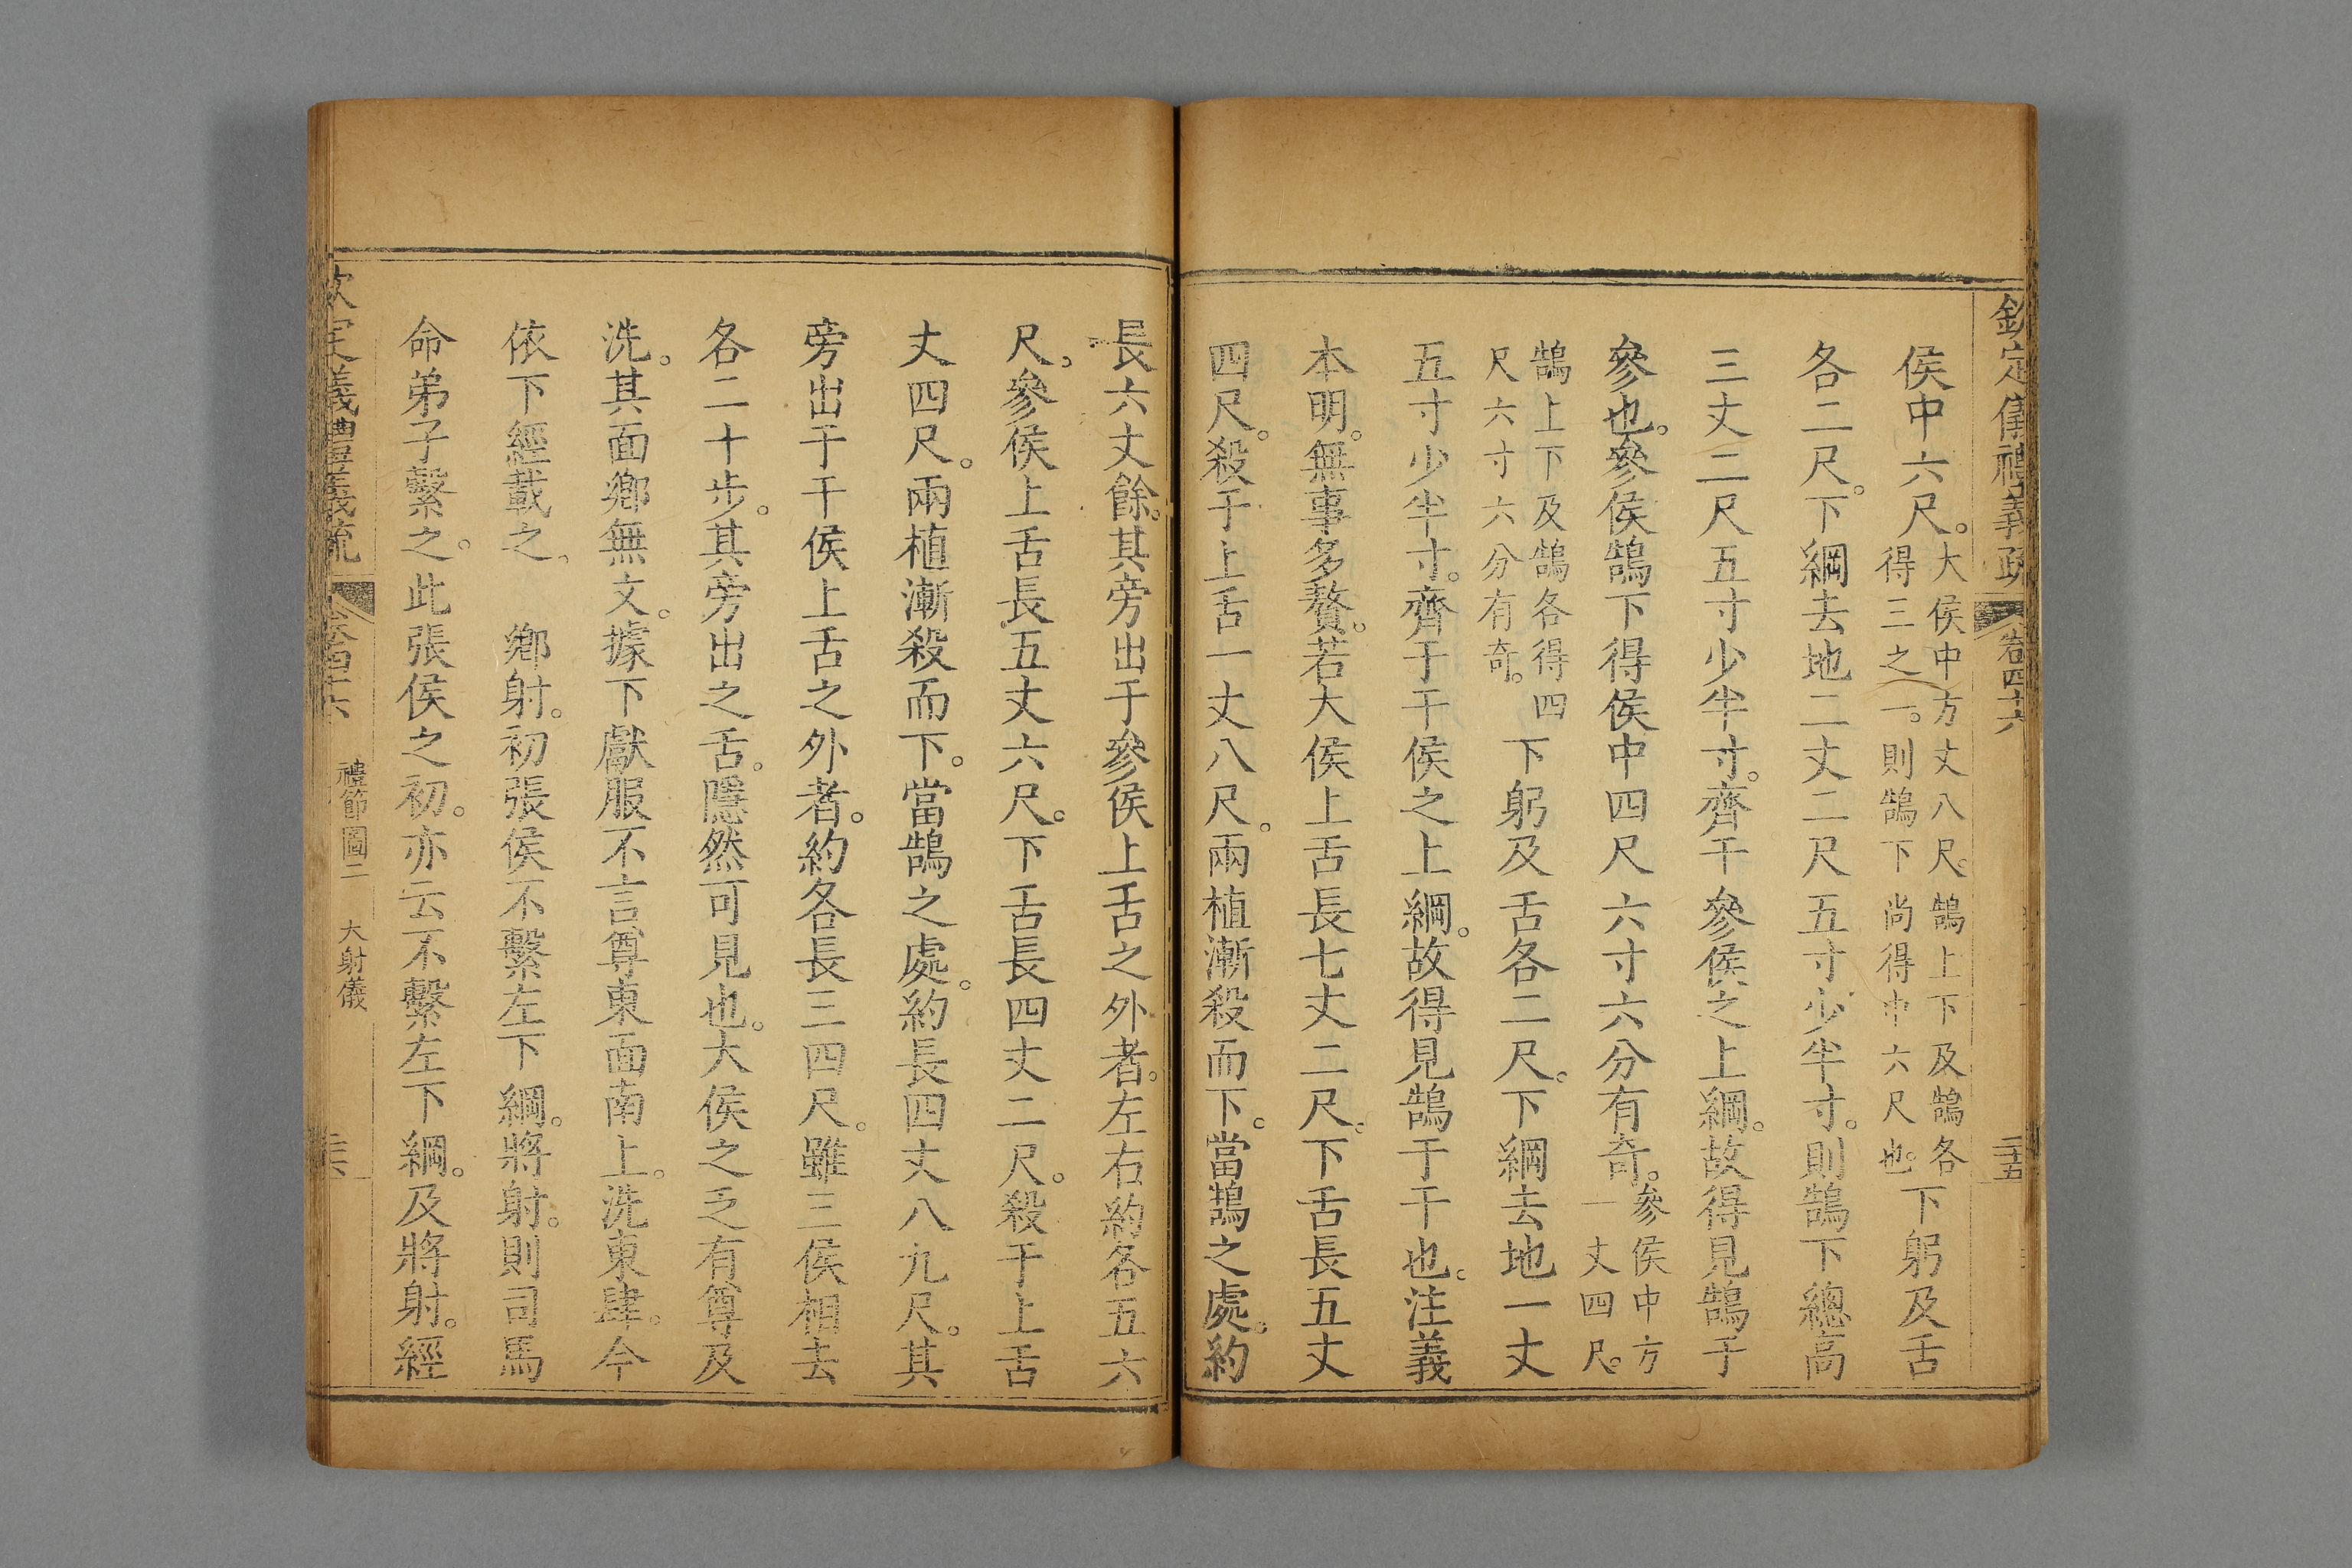 欽定儀禮義疏 卷四十六 二十五
侯中六尺。大侯中方丈八尺。鵠上下及鵠各得三之一。則鵠下尚得中六尺也。下躬及舌
各二尺。下綱去地二丈二尺五寸少半寸。則鵠下總高
三丈二尺五寸少半寸。齊干參侯之上綱。故得見鵠于
參也。參侯鵠下得侯中四尺六寸六分有奇。參侯中方一丈四尺。
鵠上下及鵠各得四尺六寸六分有奇。下躬及舌各二尺。下綱去地一丈
五寸少半寸。齊于干侯之上綱。故得見鵠于干也。注義
本明。無事多贅。若大侯上舌長七丈二尺。下舌長五丈
四尺。殺于上舌一丈八尺。兩植漸殺而下。當鵠之處。約
長六丈餘。其旁出于參侯上舌之外者。左右約各五六
尺。參侯上舌長五丈六尺。下舌長四丈二尺。殺于上舌
丈四尺。兩植漸殺而下。當鵠之處。約長四丈八九尺。其
旁出于干侯上舌之外者。約各長三四尺。雖三侯相去
各二十步。其旁出之舌。隱然可見也。大侯之乏有尊及
洗。其面鄉無文。據下獻服不言尊東面南上。洗東肆。今
依下經載之。 鄉射。初張侯不繫左下綱。將射。則司馬
命弟子繫之。此張侯之初。亦云不繫左下綱。及將射。經
欽定義禮義疏 卷四十六 禮節圖二 大射儀 二十六